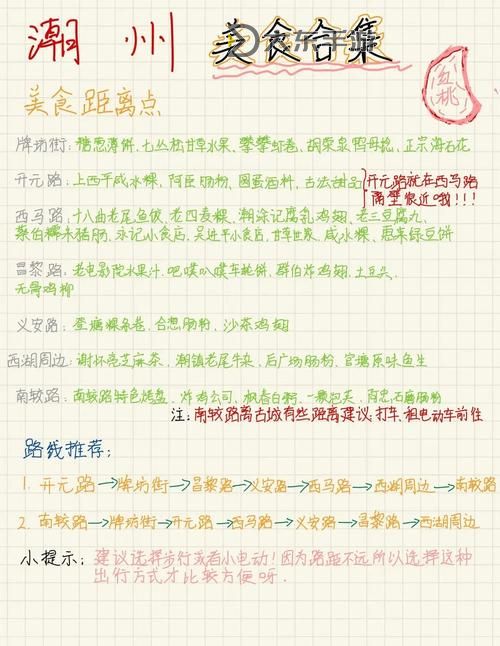 潮 州 美食合集
血桃
美食距离点
牌坊街: 糖葱薄饼、七丛松甘草水果、攀攀虾卷、胡荣泉鸭母捻、正宗海石花
开元路: 上西平咸水粿、阿臣肠粉、圆蛋酒料、古法甜品
开元路就在西马路
隔壁很近哦!!!
西马路: 十八曲老尾鱼饺、老四麦粿、潮涂记腐乳鸡翅、老三豆腐丸、
蔡伯糯米猪肠、永记小食店、吴进平小食店、甘草世家、咸水粿、惠来绿豆饼
昌黎路: 老电影院水果汁、吧噗叭噗车轮饼、群伯炸鸡翅、土豆头、
无骨鸡柳
义安路: 奎塘粿杂卷、合想肠粉、沙茶鸡翅
西湖周边: 谢怀亮芝麻茶、潮镇老尾牛杂、后广场肠粉、官塘原味鱼生
南较路: 南较路特色烤盘、炸鸡公司、枫春白粥、一颗泡芙、阿忠石磨肠粉
注: 南较路离古城有些距离建议打车、租电动车前往
路线推荐:
1. 开元路→牌坊街→昌黎路→义安路→西马路→西湖周边→南较路
2. 南较路→牌坊街→开元路→西马路→义安路→昌黎路→西湖周边
小提示: 建议选择步行或者小电动!因为路距不远所以选择这种
出行方式才比较方便呀.